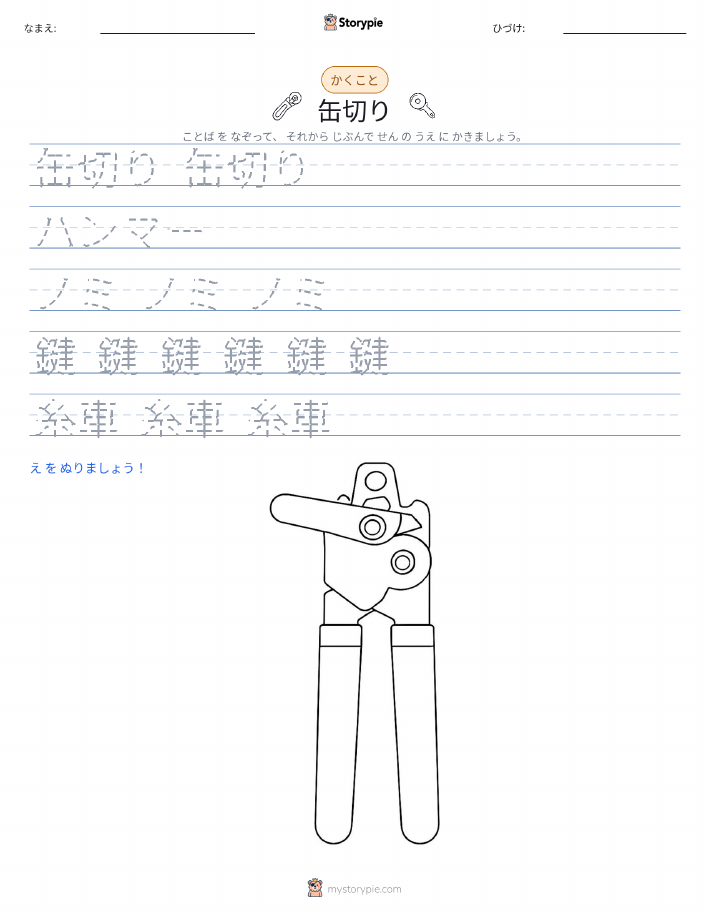 なまえ:
Storypie
ひづけ:
かくこと
缶切り
ことば を なぞって、 それから じぶんで せん の うえ に かきましょう。
缶切り 缶切り
ハンマー
ノミ ノミ ノミ
鍵 鍵 鍵 鍵 鍵 鍵
糸車 糸車 糸車
え を ぬりましょう！
mystorypie.com